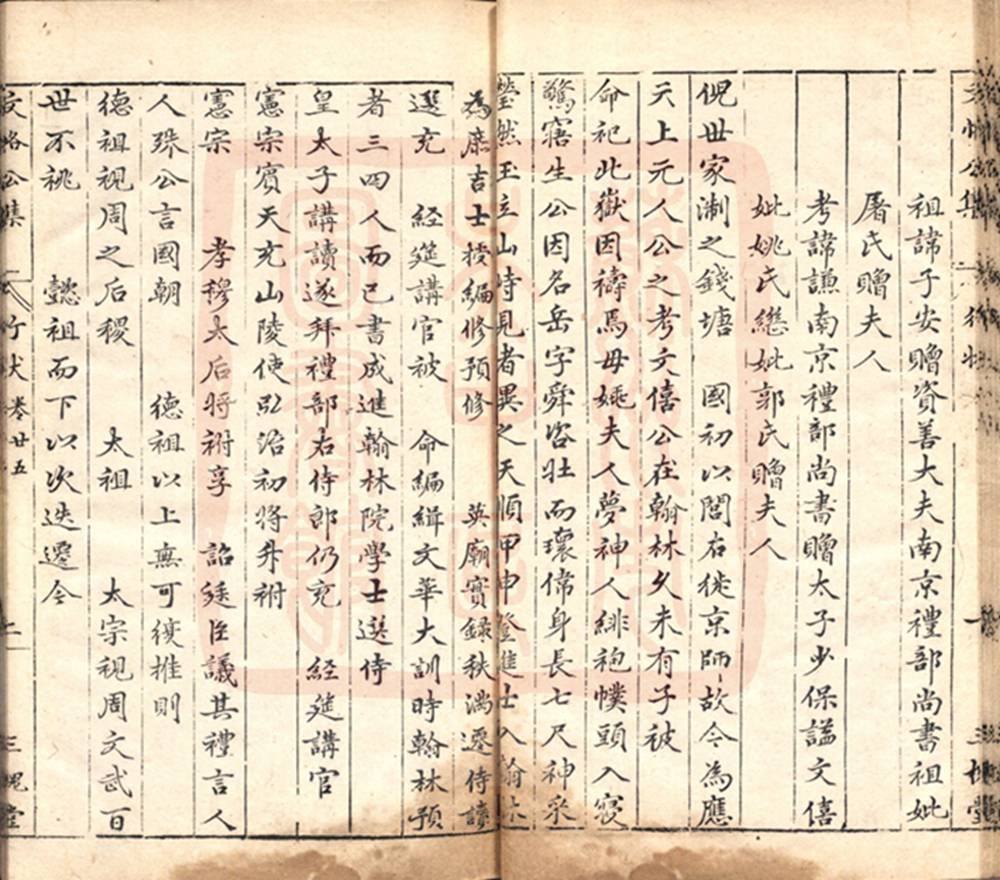 祖諱子安贈資善大夫南京禮部尚書祖妣
屠氏贈夫人
考諱謙南京禮部尚書贈太子少保謚文僖
妣姚氏繼妣郭氏贈夫人
倪世家淛之錢塘 國初以閭右徙京師故今為應
天上元人公之考文僖公在翰林久未有子被
命祀此嶽因禱焉母姚夫人夢神人緋袍幞頭入寢
驚寤生公因名岳字舜咨壯而瓌偉身長七尺神采
瑩然玉立山峙見者異之天順甲申登進士入翰林
為庶吉士授編修預修 英廟實錄秩滿遷侍讀
選充 經筵講官被 命編緝文華大訓時翰林預
者三四人而已書成進翰林院學士選侍
皇太子講讀遂拜禮部右侍郎仍充 經筵講官
憲宗賓天充山陵使弘治初將升祔
憲宗 孝穆太后將祔享 詔廷臣議其禮言人
人殊公言國朝 德祖以上無可復推則
德祖視周之后稷 太祖 太宗視周文武百
世不祧 懿祖而下以次迭遷今